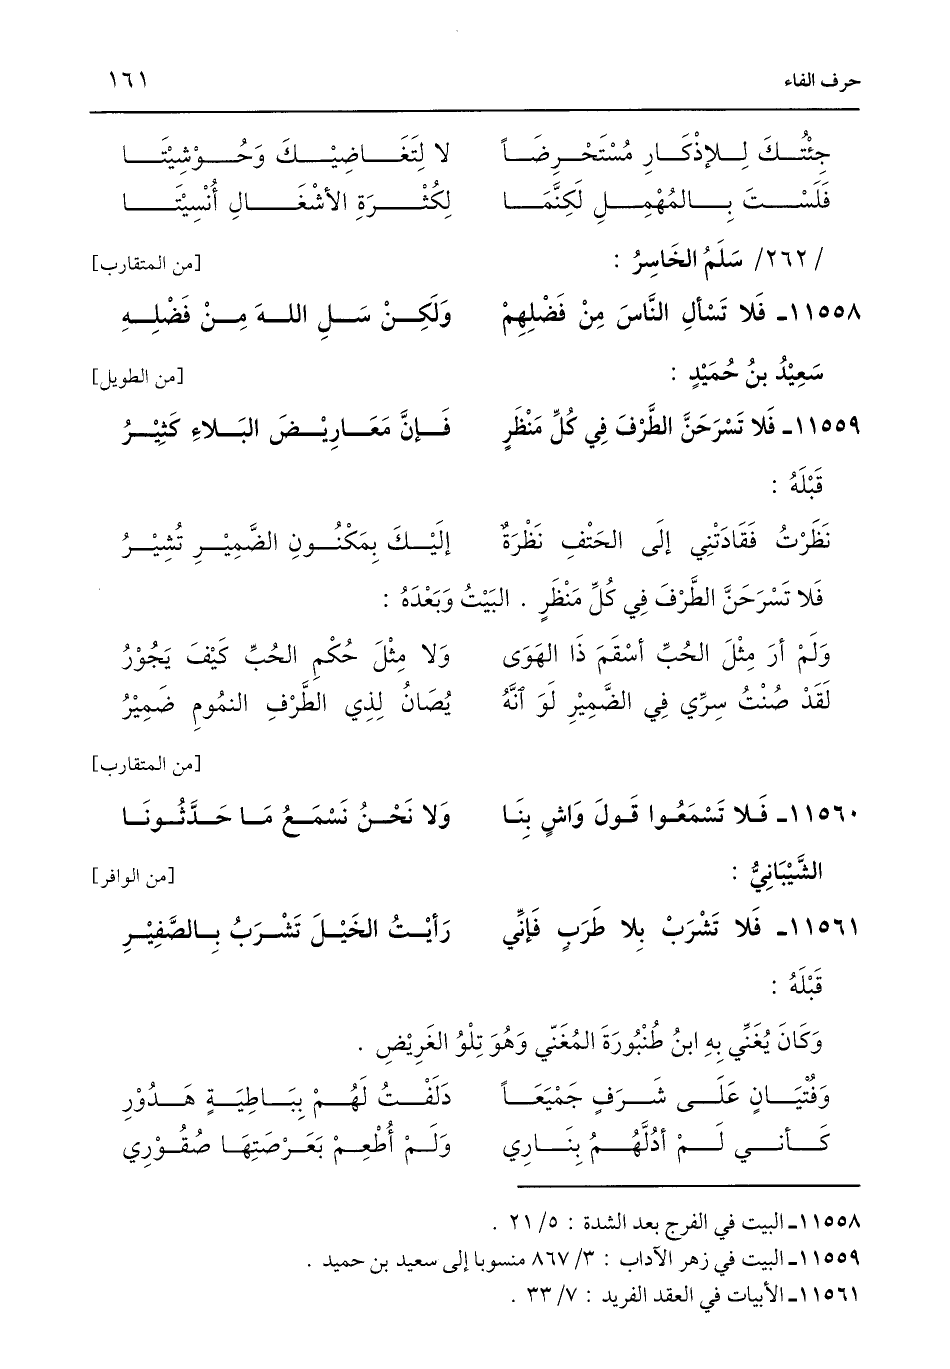 حرف الفاء ١٦١
جِئْتُكَ لِلإِذْكَارِ مُسْتَحْرِضَاً لا لِتَغَاضِيْكَ وَحُوْشِيْتَا
فَلَسْتَ بِالمُهْمِلِ لَكِنَّمَا لِكُثْرَةِ الأَشْغَالِ أُنْسِيْتَا
/٢٦٢/ سَلَمُ الخَاسِرُ : [من المتقارب]
١١٥٥٨ـ فَلا تَسْأَلِ النَّاسَ مِنْ فَضْلِهِمْ وَلَكِنْ سَلِ اللهَ مِنْ فَضْلِهِ
سَعِيْدُ بنُ حُمَيْدٍ : [من الطويل]
١١٥٥٩ـ فَلا تَسْرَحَنَّ الطَّرْفَ فِي كُلِّ مَنْظَرٍ فَإِنَّ مَعَارِيْضَ البَلاءِ كَثِيْرُ
قَبْلَهُ :
نَظَرْتُ فَقَادَتْنِي إِلَى الحَتْفِ نَظْرَةٌ إِلَيْكَ بِمَكْنُونِ الضَّمِيْرِ تُشِيْرُ
فَلا تَسْرَحَنَّ الطَّرْفَ فِي كُلِّ مَنْظَرٍ . البَيْتُ وَبَعْدَهُ :
وَلَمْ أَرَ مِثْلَ الحُبِّ أَسْقَمَ ذَا الهَوَى وَلا مِثْلَ حُكْمِ الحُبِّ كَيْفَ يَجُوْرُ
لَقَدْ صُنْتُ سِرِّي فِي الضَّمِيْرِ لَوَ ٱنَّهُ يُصَانُ لِذِي الطَّرْفِ النمُومِ ضَمِيْرُ
[من المتقارب]
١١٥٦٠ـ فَلا تَسْمَعُوا قَولَ وَاشٍ بِنَا وَلا نَحْنُ نَسْمَعُ مَا حَدَّثُونَا
الشَّيْبَانِيُّ : [من الوافر]
١١٥٦١ـ فَلا تَشْرَبْ بِلا طَرَبٍ فَإِنِّي رَأَيْتُ الخَيْلَ تَشْرَبُ بِالصَّفِيْرِ
قَبْلَهُ :
وَكَانَ يُغَنِّي بِهِ ابنُ طُنْبُورَةَ المُغَنّي وَهُوَ تِلْوُ الغَرِيْضِ .
وَفِتْيَانٍ عَلَى شَرَفٍ جَمْيَعَاً دَلَفْتُ لَهُمْ بِبَاطِيَةٍ هَدُوْرِ
كَأَنِي لَمْ أَدُلَّهُمُ بِنَارِي وَلَمْ أُطْعِمْ بَعَرْصَتِهَا صُقُوْرِي
١١٥٥٨ـ البيت في الفرج بعد الشدة : ٥/ ٢١ .
١١٥٥٩ـ البيت في زهر الآداب : ٣/ ٨٦٧ منسوبا إلى سعيد بن حميد .
١١٥٦١ـ الأبيات في العقد الفريد : ٧/ ٣٣ .